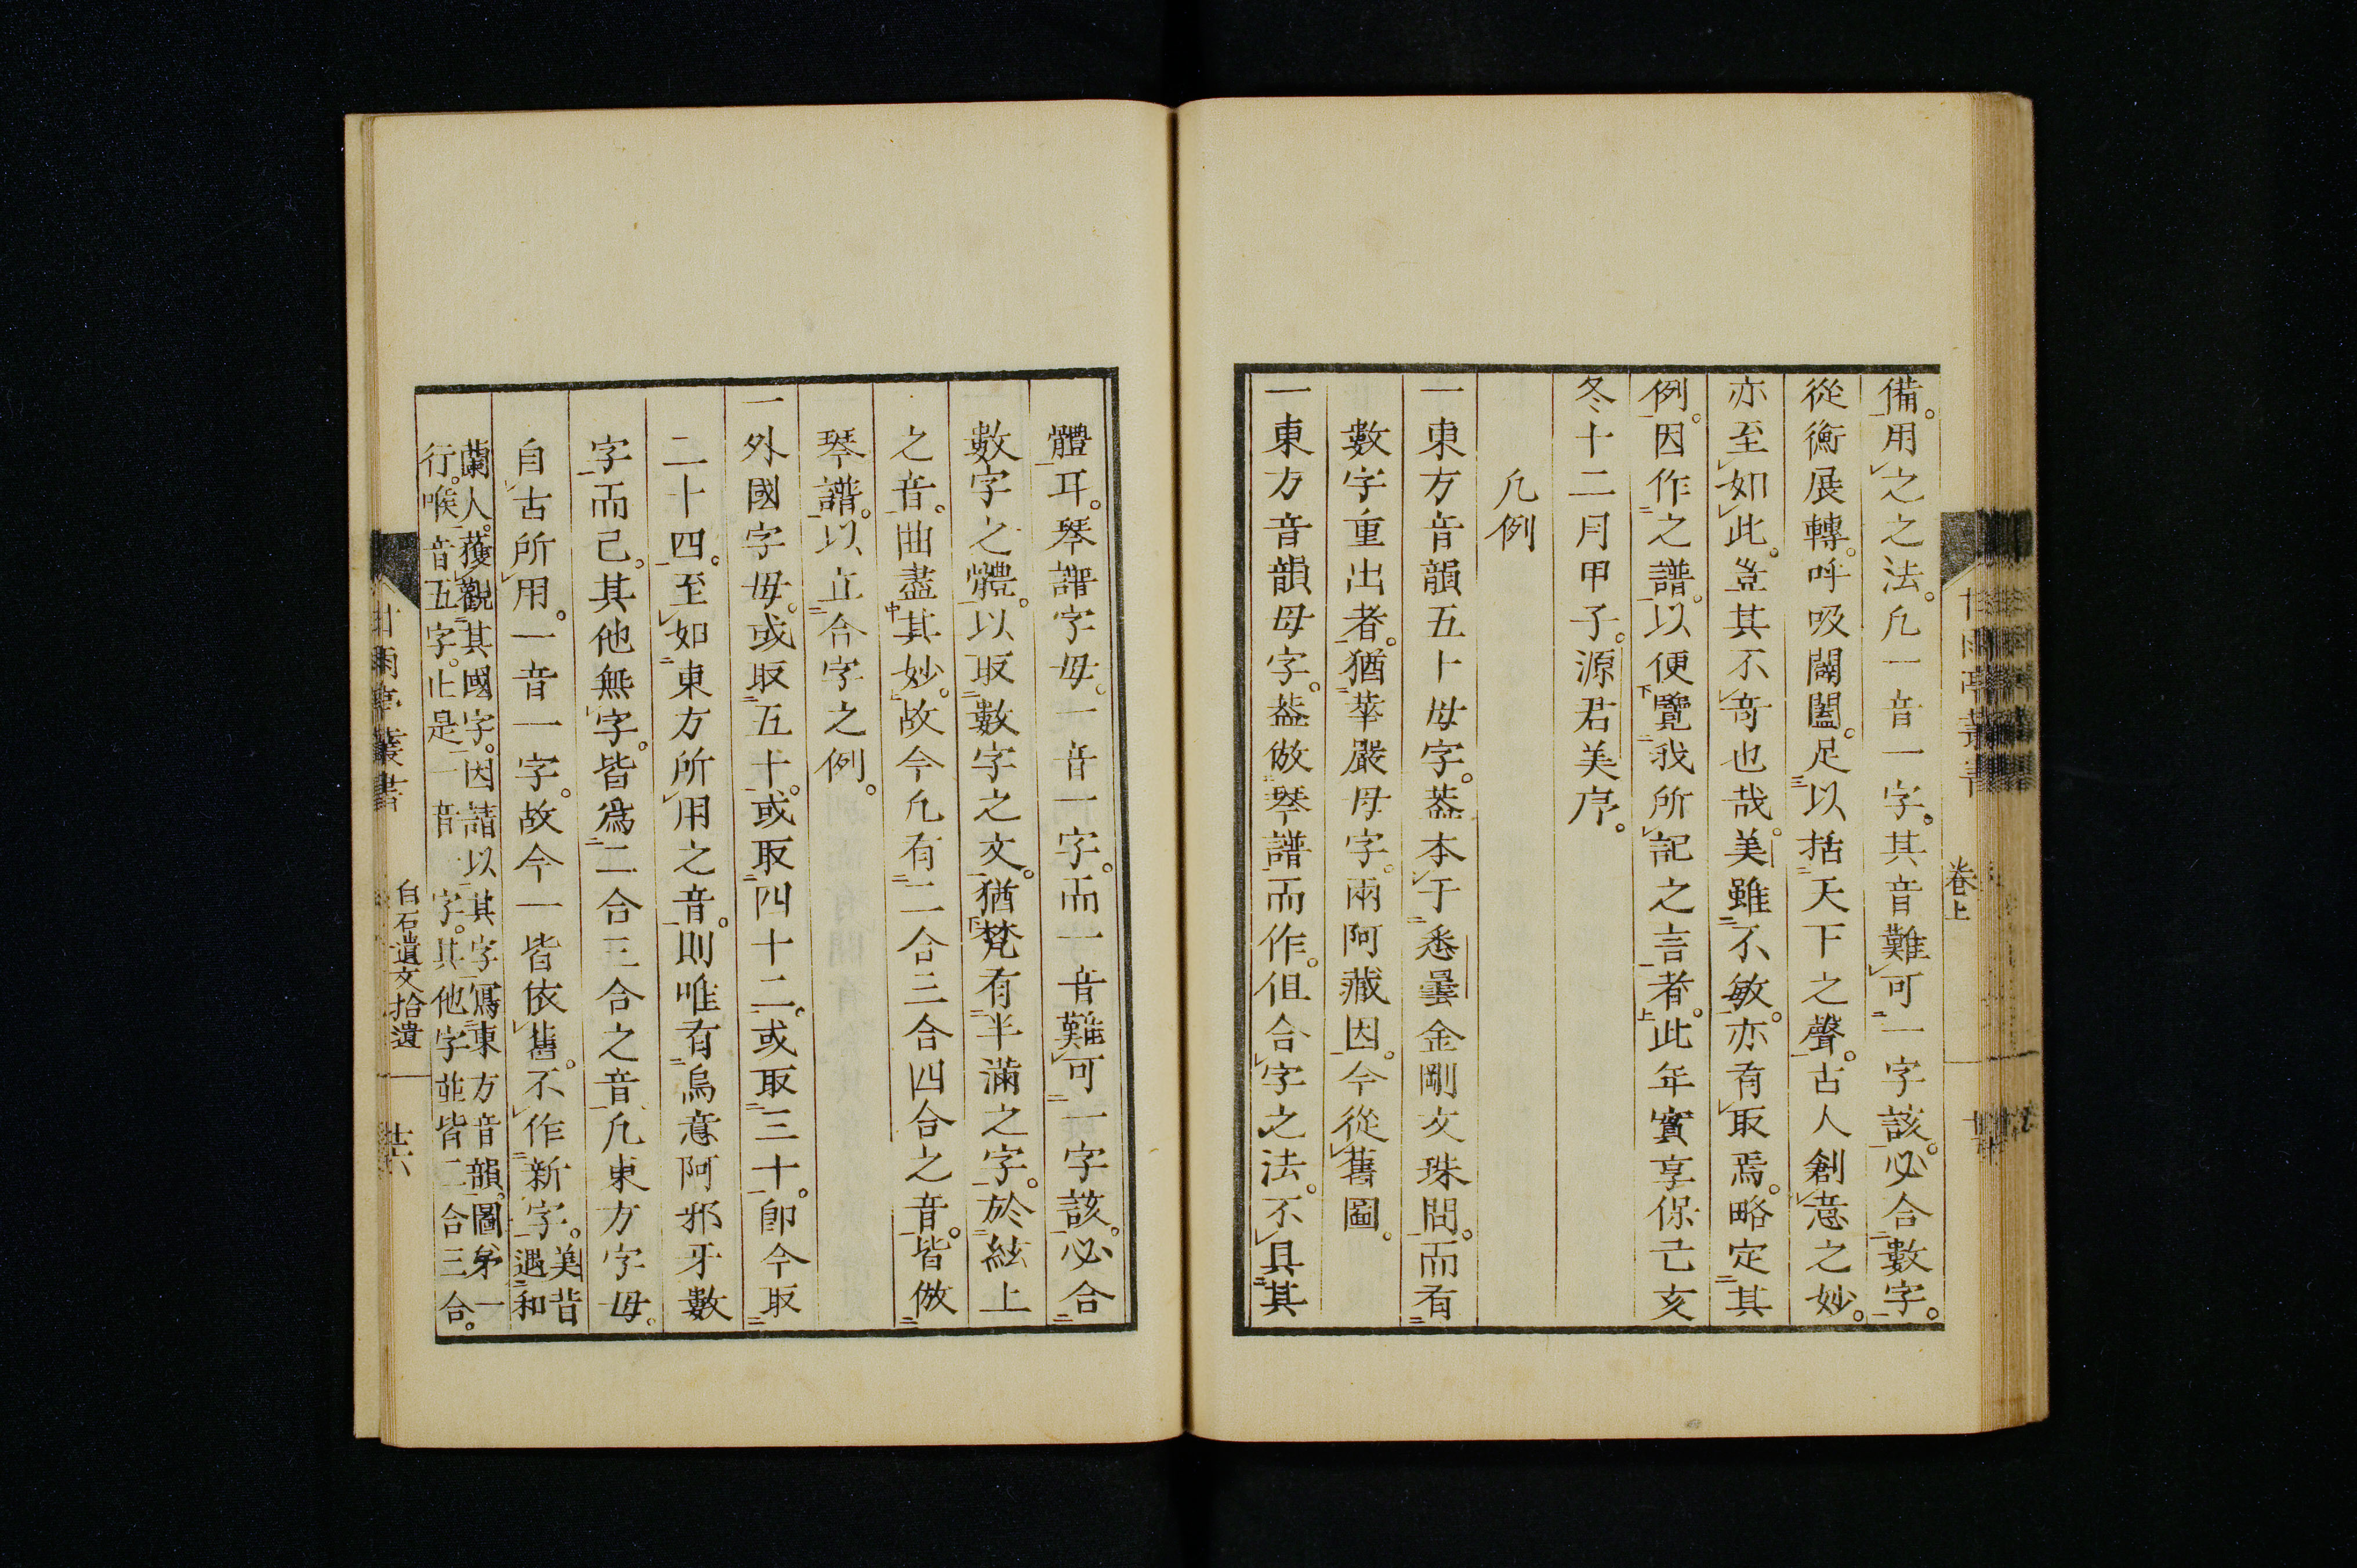 備。用之之法。凡一音一字。其音難可一字該。必合數字。
從衡展轉。呼吸闢闔。足以括天下之聲。古人創意之妙。
亦至如此。豈其不奇也哉。美雖不敏。亦有取焉。略定其
例。因作之譜。以便覽我所記之言者。此年實享保己亥
冬十二月甲子。源君美序。
凡例
一東方音韻五十母字。葢本于悉曇金剛文珠問。而有
數字重出者。猶華嚴母字。兩阿藏因。今從舊圖。
一東方音韻母字。葢倣琴譜而作。但合字之法。不具其
卷上
體耳。琴譜字母。一音一字。而一音難可一字該。必合
數字之體。以取數字之文。猶梵有半滿之字。於絃上
之音。曲盡其妙。故今凡有二合三合四合之音。皆倣
琴譜。以立合字之例。
一外國字母。或取五十。或取四十二。或取三十。卽今取
二十四。至如東方所用之音。則唯有烏意阿邪牙數
字而已。其他無字。皆爲二合三合之音。凡東方字母。
自古所用。一音一字。故今一皆依舊。不作新字。美昔遇和
蘭人。獲觀其國字。因請以其字寫東方音韻。圖第一
行。喉音五字。止是一音一字。其他字並皆二合三合。
甘雨亭叢書
白石遺文拾遺